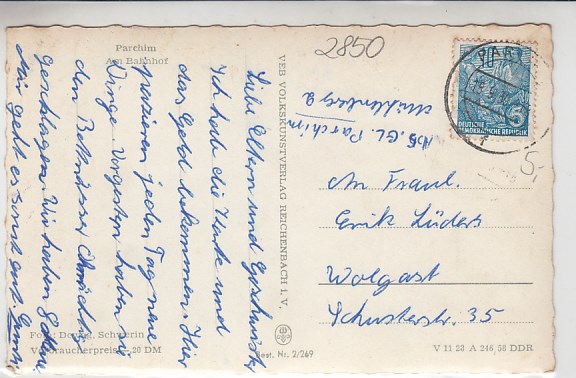 Parchim
Am Bahnhof
2850
Liebe Eltern und Geschwister
Ich habe die Karte und
das Geld bekommen. Hier
passieren jeden Tag neue
Dinge. Vorgestern haben wir
den
geschlagen. Wir haben
Mir geht es sonst gut.
VEB VOLKSKUNSTVERLAG REICHENBACH i. V.
Abs. Gl. Parchim
PAR
5
DEUTSCHE
DEMOKRATISCHE REPUBLIK
f
5,
An Fam.
Erik Lüders
Wolgast
Schusterstr. 35
Foto: Schwerin
Verbraucherpreis —,20 DM
Best. Nr. 2/269
V 11 28 A 246 58 DDR